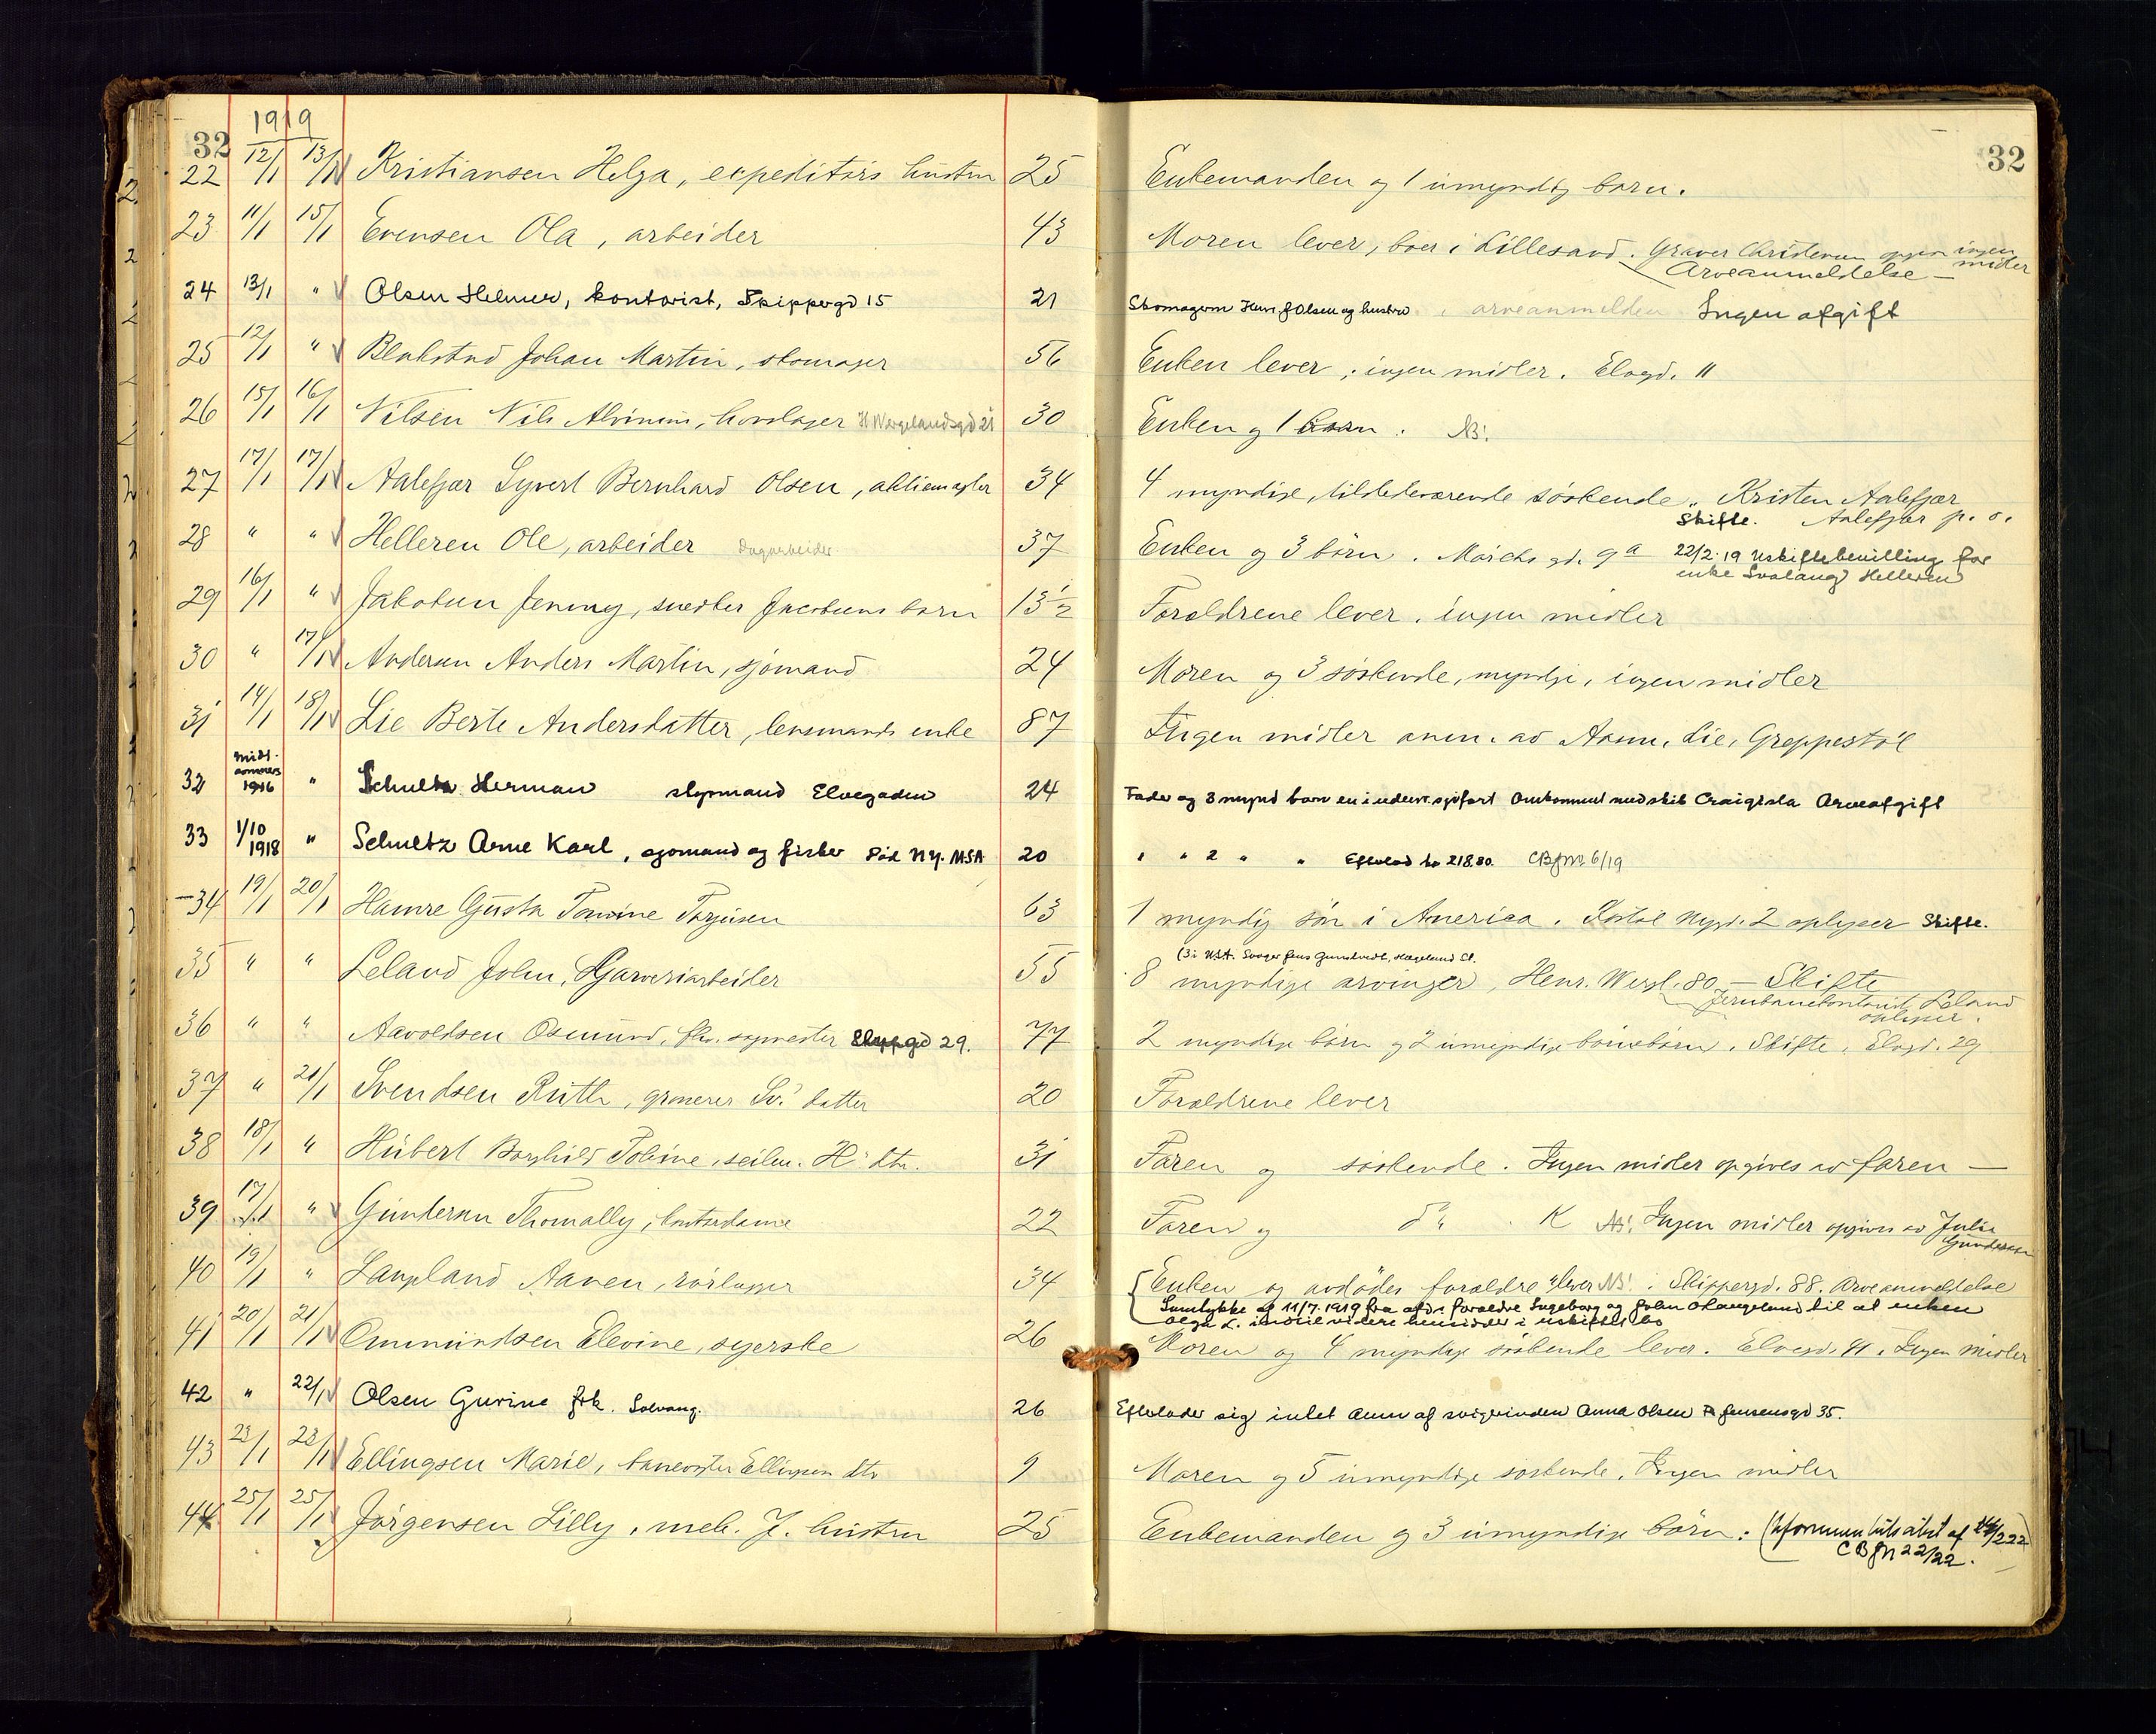 32 1919
22 12/1 13/1 Kristiansen Helga, expeditörs hustru 25 Enkemanden og 1 umyndig barn.
23 11/1 15/1 Evensen Ola, arbeider 43 Moren lever, boer i Lillesand. Graver Christensen ingen midler
Arveanmeldelse —
24 13/1 " Olsen Helmer, kontorist, Skippergd 15 21 Skomagerm Olsen og hustru arveanmelden Ingen afgift
25 12/1 " Blakstad Johan Martin, skomager 56 Enken lever, ingen midler. Elvegd. 11
26 15/1 16/1 Nilsen Nils Alvinius, hovslager H Wergelandsgd 21 30 Enken og 1 barn. NB!
27 17/1 17/1 Aalefjær Syvert Bernhard Olsen, aktiemægler 34 4 myndige, tilstedeværende söskende. Kristen Aalefjær
Skifte. Aalefjær p. o.
28 " " Helleren Ole, arbeider Dagarbeider 37 Enken og 3 börn. Markens gd. 9a 22/2.19 Uskiftebevilling for
enke Svalaug Helleren
29 16/1 " Jakobsen Jenny, snedker Jacobsens barn 13½ Forældrene lever, ingen midler
30 " 17/1 Andersen Anders Martin, sjömand 24 Moren og 3 söskende, myndige, ingen midler
31 14/1 18/1 Lie Berte Andersdatter, lensmands enke 87 Ingen midler anm. av Aasm. Lie, Greppestöl
32 Midt-sommers 1916 " Schultz Herman styrmand Elvegaden 24 Fader og 3 mynd barn en i udenr. sjöfart Omkommet med skib Craigisla Arveafgift
33 1/10 1918 " Schultz Arne Karl, sjomand og fisker Död N.Y. USA 20 " " 2 " " Efterlod kr 218.80. CBjN° 6/19
34 19/1 20/1 Hamre Gusta Tomine Torjusen 63 1 myndig sön i America. Nygd. 2 oplyser Skifte.
(3 i USA. Svoger Jens Gundersen, Hægeland St.
35 " " Leland John, Garveriarbeider 55 8 myndige arvinger, Henr. Wergl. 80 — Skifte
Jernbanekontorist Leland oplyser.
36 " " Aavoldsen Osmund, fhv. sagmester Elvegd 29. 77 2 myndige börn og 2 umyndige börnebörn. Skifte, Elvgd. 29
37 " 21/1 Svendsen Ruth, grosserer Sv.' datter 20 Forældrene lever
38 18/1 " Hubert Borghild Tobine, seilm. H' dtr. 31 Faren og söskende. Ingen midler opgives av faren —
39 17/1 " Gundersen Thomally, kontordame 22 Faren og do K NB! Ingen midler opgives av Julie
Gundersen
40 19/1 " Langland Aanen, rörlægger 34 Enken og avdödes forældre lever NB! Skippergd. 88. Arveanmeldelse
Samtykke af 11/7.1919 fra afd's forældre Ingeborg og John O Langeland til at enken
Olga L. indtil videre hensidder i uskiftet bo
41 20/1 21/1 Ommundsen Elevine, syerske 26 Moren og 4 myndige söskende lever. Elvegd. 41. Ingen midler
42 " 22/1 Olsen Gurine frk. Solvang. 26 Efterlader sig intet anm af svigerinden Anna Olsen Jensensgd 35.
43 23/1 23/1 Ellingsen Marie, banevogter Ellingsen dtr 9 Moren og 5 umyndige söskende. Ingen midler
44 25/1 25/1 Jörgensen Lilly, mek. J. hustru 25 Enkemanden og 3 umyndige börn. af 14/2 22
CBjN 22/22.
32